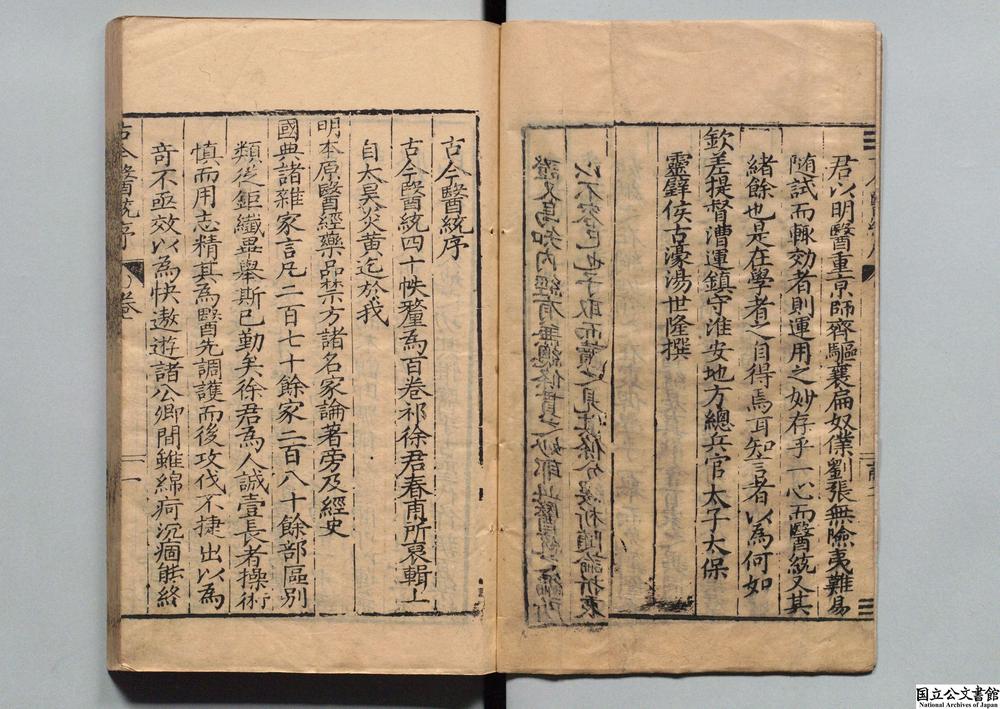 君以明醫重京師齊驅襄扁奴僕劉張無險夷難易
随試而輙効者則運用之妙存乎一心而醫統又其
緒餘也是在學者之自得焉耳知言者以為何如
欽差提督漕運鎮守淮安地方總兵官太子太保
靈璧侯古濠湯世隆撰
古今醫統序
古今醫統四十帙釐為百卷祁徐君春甫所裒輯上
自太昊炎黃迄於我
明本原醫經藥品禁方諸名家論著旁及經史
國典諸雜家言凡二百七十餘家二百八十餘部區別
類從鉅纖畢舉斯已勤矣徐君為人誠壹長者操術
慎而用志精其為醫先調護而後攻伐不捷出以為
奇不亟效以為快遨遊諸公卿間雖綿痾沉痼能終
古今醫統序
一
国立公文書館
National Archives of Japan